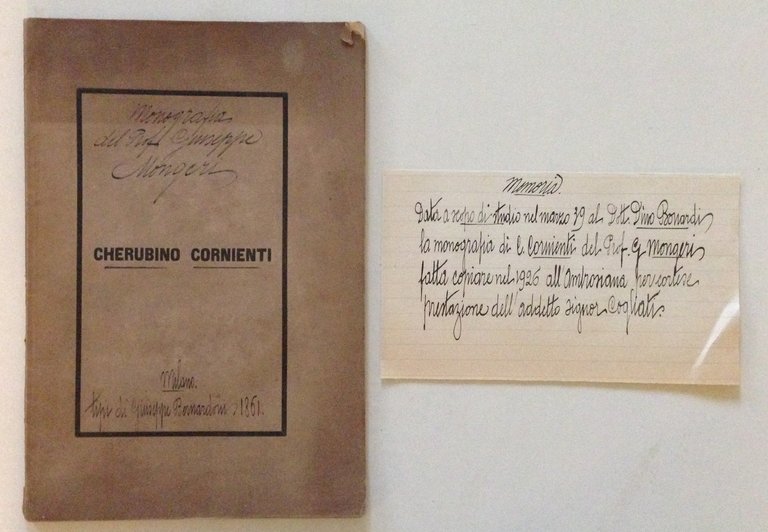 Monografia
del Prof. Giuseppe
Mongeri
CHERUBINO CORNIENTI
Milano.
tipi di Giuseppe Bernardoni 1861.
Memoria.
Data a scopo di studio nel marzo 39 al Dott. Dino Bonardi
la monografia di C. Cornienti del Prof. G. Mongeri
fatta copiare nel 1926 all'Ambrosiana per cortese
prestazione dell'addetto signor Cogliati.